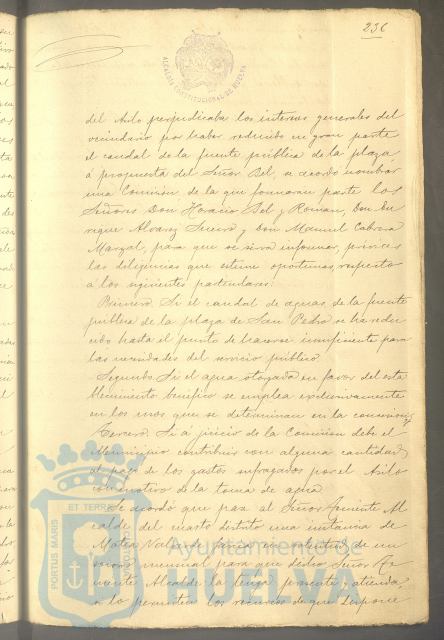 236
ALCALDIA CONSTITUCIONAL DE HUELVA
del Asilo perjudicaba los intereses generales del
vecindario por haber reducido en gran parte
el caudal de la fuente pública de la plaza
á propuesta del Señor Bel, se acordó nombrar
una Comisión de la que formaran parte los
Señores Don Horacio Bel y Roman, Don En
rique Alvarez y Don Manuel Cabrera
para que se sirva informar, previas
las diligencias que estime oportunas, respecto
á los siguientes particulares:
Primero. Si el caudal de aguas de la fuente
pública de la plaza de San Pedro se ha redu
cido hasta el punto de hacerse insuficiente para
las necesidades del servicio público
Segundo. Si el agua otorgada en favor del esta
blecimiento benéfico se emplea exclusivamente
en los usos que se determinan en la concesión y
Tercero. Si á juicio de la Comisión debe el
Municipio contribuir con alguna cantidad
al pago de los gastos sufragados por el Asilo
con motivo de la toma de agua
Se acordó que pase al Señor Teniente Al
calde del cuarto distrito una instancia de
Mateo de solicitud de un
socorro mensual para que dicho Señor Te
niente Alcalde la tenga presente y atienda
si lo permiten los recursos de que dispone
PORTUS MARIS ET TERRAE CUSTODIA
Ayuntamiento de
HUELVA